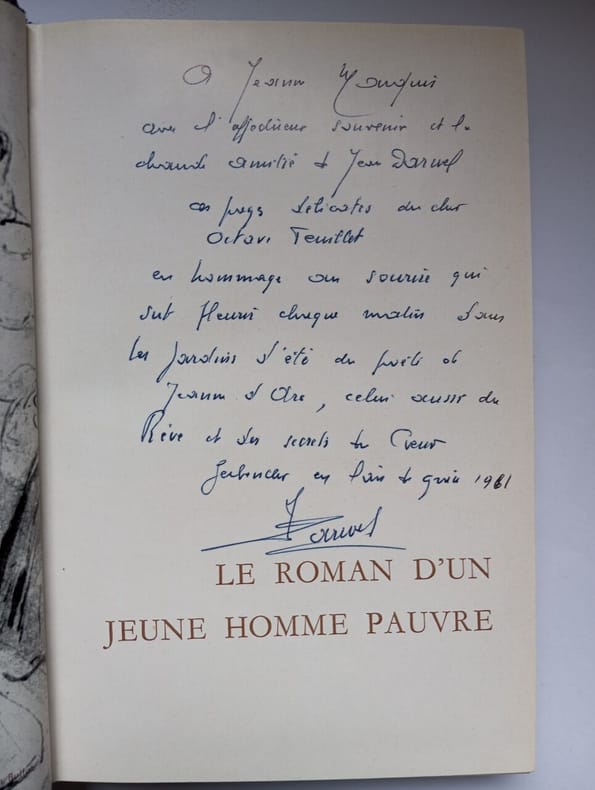 A Jeanne Marquis
avec l'affectueux souvenir et la
chaude amitié de Jean Darvel
ces pages délicates du cher
Octave Feuillet
en hommage au sourire qui
sut fleurir chaque matin dans
les jardins d'été du poète de
Jeanne d'Arc, celui aussi du
Rêve et des secrets du Cœur
en l'an de grâce 1961
Darvel
LE ROMAN D'UN
JEUNE HOMME PAUVRE